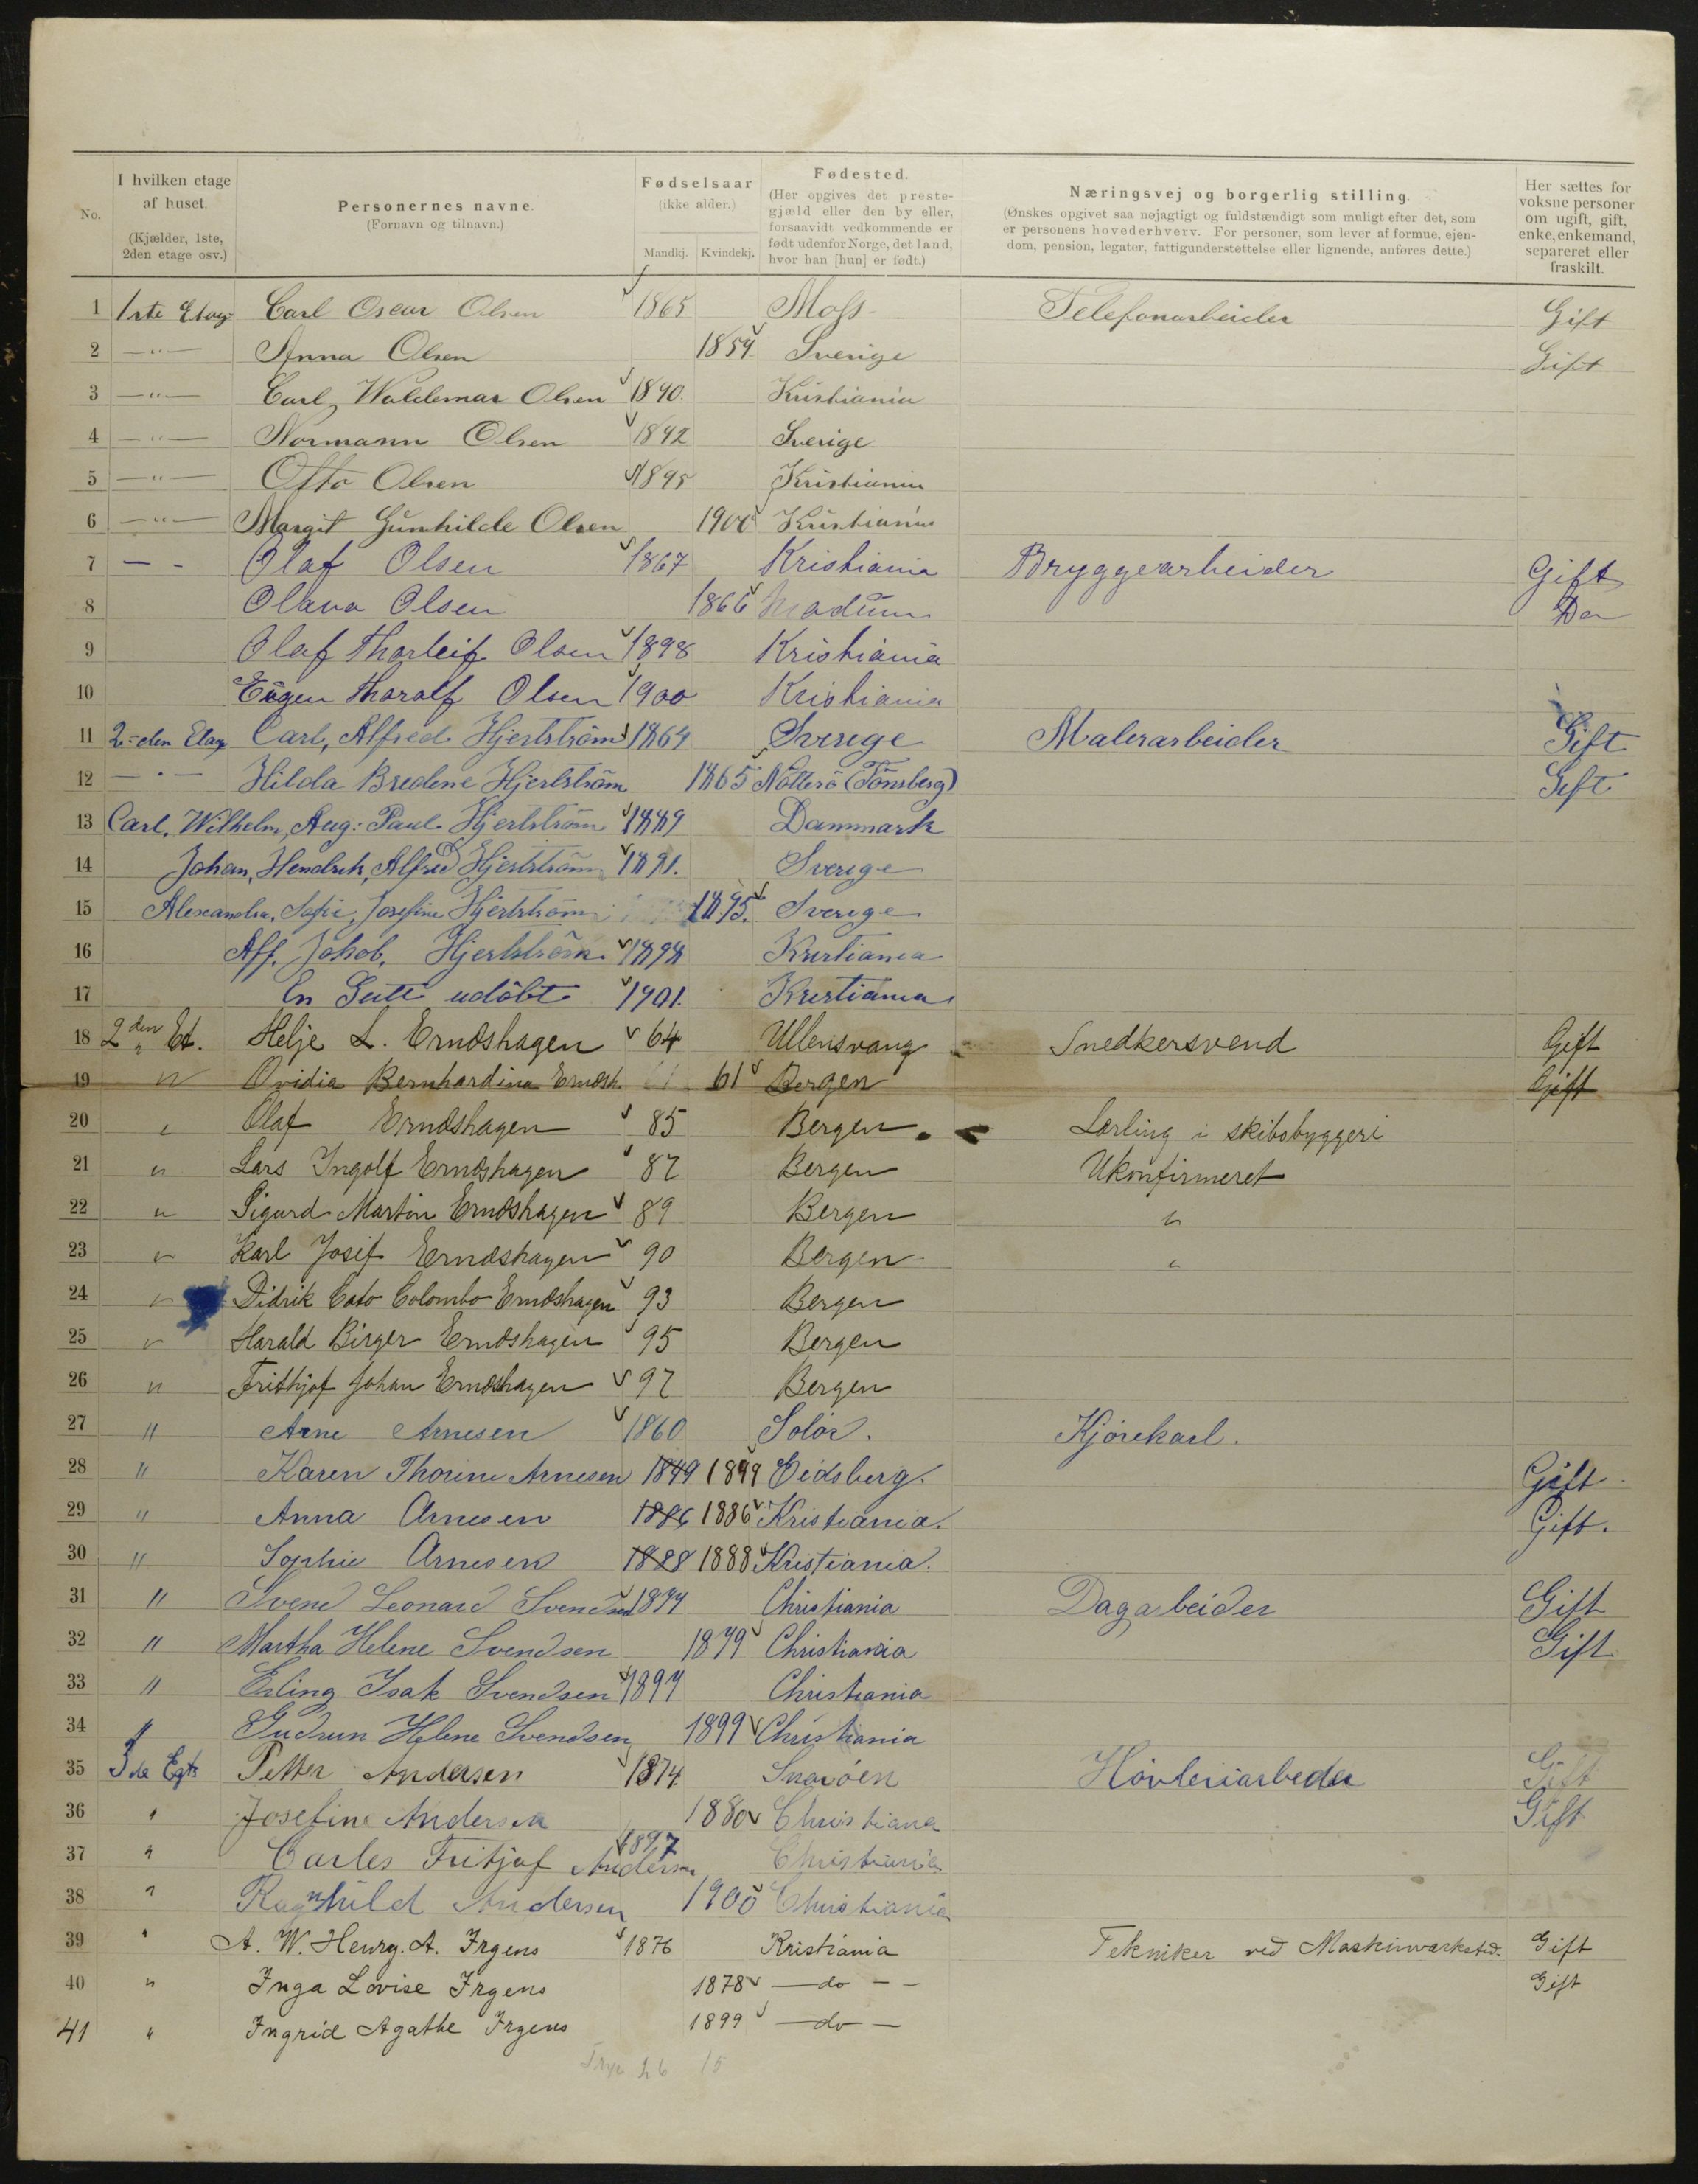 No.
I hvilken etage af huset.
(Kjælder, 1ste, 2den etage osv.)
Personernes navne.
(Fornavn og tilnavn.)
Fødselsaar
(ikke alder.)
Mandkj. Kvindekj.
Fødested.
(Her opgives det prestegjæld eller den by eller, forsaavidt vedkommende er født udenfor Norge, det land, hvor han [hun] er født.)
Næringsvej og borgerlig stilling.
(Ønskes opgivet saa nøjagtigt og fuldstændigt som muligt efter det, som er personens hovederhverv. For personer, som lever af formue, ejendom, pension, legater, fattigunderstøttelse eller lignende, anføres dette.)
Her sættes for voksne personer om ugift, gift, enke, enkemand, separeret eller fraskilt.
1 1ste Etag Carl Oscar Olsen 1865 Moss Telefonarbeider Gift
2 —"— Anna Olsen 1854 Sverige Gift
3 —"— Carl Waldemar Olsen 1890. Kristiania
4 —"— Normann Olsen 1892 Sverige
5 —"— Otto Olsen 1895 Kristiania
6 —"— Margit Gunhilde Olsen 1900 Kristiania
7 — - Olaf Olsen 1867 Kristiania Bryggearbeider Gift
8 Olava Olsen 1866 Modum Do
9 Olaf Thorleif Olsen 1898 Kristiania
10 Eugen Tharalf Olsen 1900 Kristiania
11 2-den Etag Carl, Alfred Hjertström 1864 Sverige Malerarbeider Gift
12 — " — Hilda Bredene Hjertström 1865 Nötterö (Tönsberg) Gift
13 Carl, Wilhelm, Aug: Paul Hjertström 1889 Dammark
14 Johan, Hendrik, Alfred Hjertström 1891. Sverige
15 Alexandra, Sofie, Josefine Hjertström 1895. Sverige
16 Alf. Jakob. Hjertström 1898 Kristiania
17 En Gutt udöbt 1901. Kristiania
18 2den Et. Helje L. Erndshagen 64 Ullensvang Snedkersvend Gift
19 " Ovidia Bernhardina Erndsh. 61 Bergen Gift
20 " Olaf Erndshagen 85 Bergen Lærling i skibsbyggeri
21 " Lars Ingolf Erndshagen 87 Bergen Ukonfirmeret
22 " Sigurd Martin Erndshagen 89 Bergen "
23 " Karl Josef Erndshagen 90 Bergen "
24 " Didrik Cato Colombo Erndshagen 93 Bergen
25 " Harald Birger Erndshagen 95 Bergen
26 " Frithjof Johan Erndshagen 97 Bergen
27 " Arne Arnesen 1860 Solör. Kjörekarl.
28 " Karen Thorine Arnesen 1849 1849 Eidsberg. Gift
29 " Anna Arnesen 1886 1886 Kristiania. Gift.
30 " Sophie Arnesen 1888 1888 Kristiania.
31 " Svend Leonard Svendsen 1874 Christiania Dagarbeider Gift
32 " Martha Helene Svendsen 1879 Christiania Gift
33 " Erling Isak Svendsen 1897 Christiania
34 " Gudrun Helene Svendsen 1899 Christiania
35 3de Egt Petter Andersen 1874 Snaröen Hövleriarbeder Gift
36 " Josefine Andersen 1880 Christiana Gift
37 " Carles Fritjof Andersen 1897 Christiania
38 " Ragnhild Andersen 1900 Christiania
39 " A. W. Henry. A. Irgens 1876 Kristiania Tekniker ved Maskinværksted. Gift
40 " Inga Lovise Irgens 1878 — do — — Gift
41 " Ingrid Agathe Irgens 1899 — do —
26 15